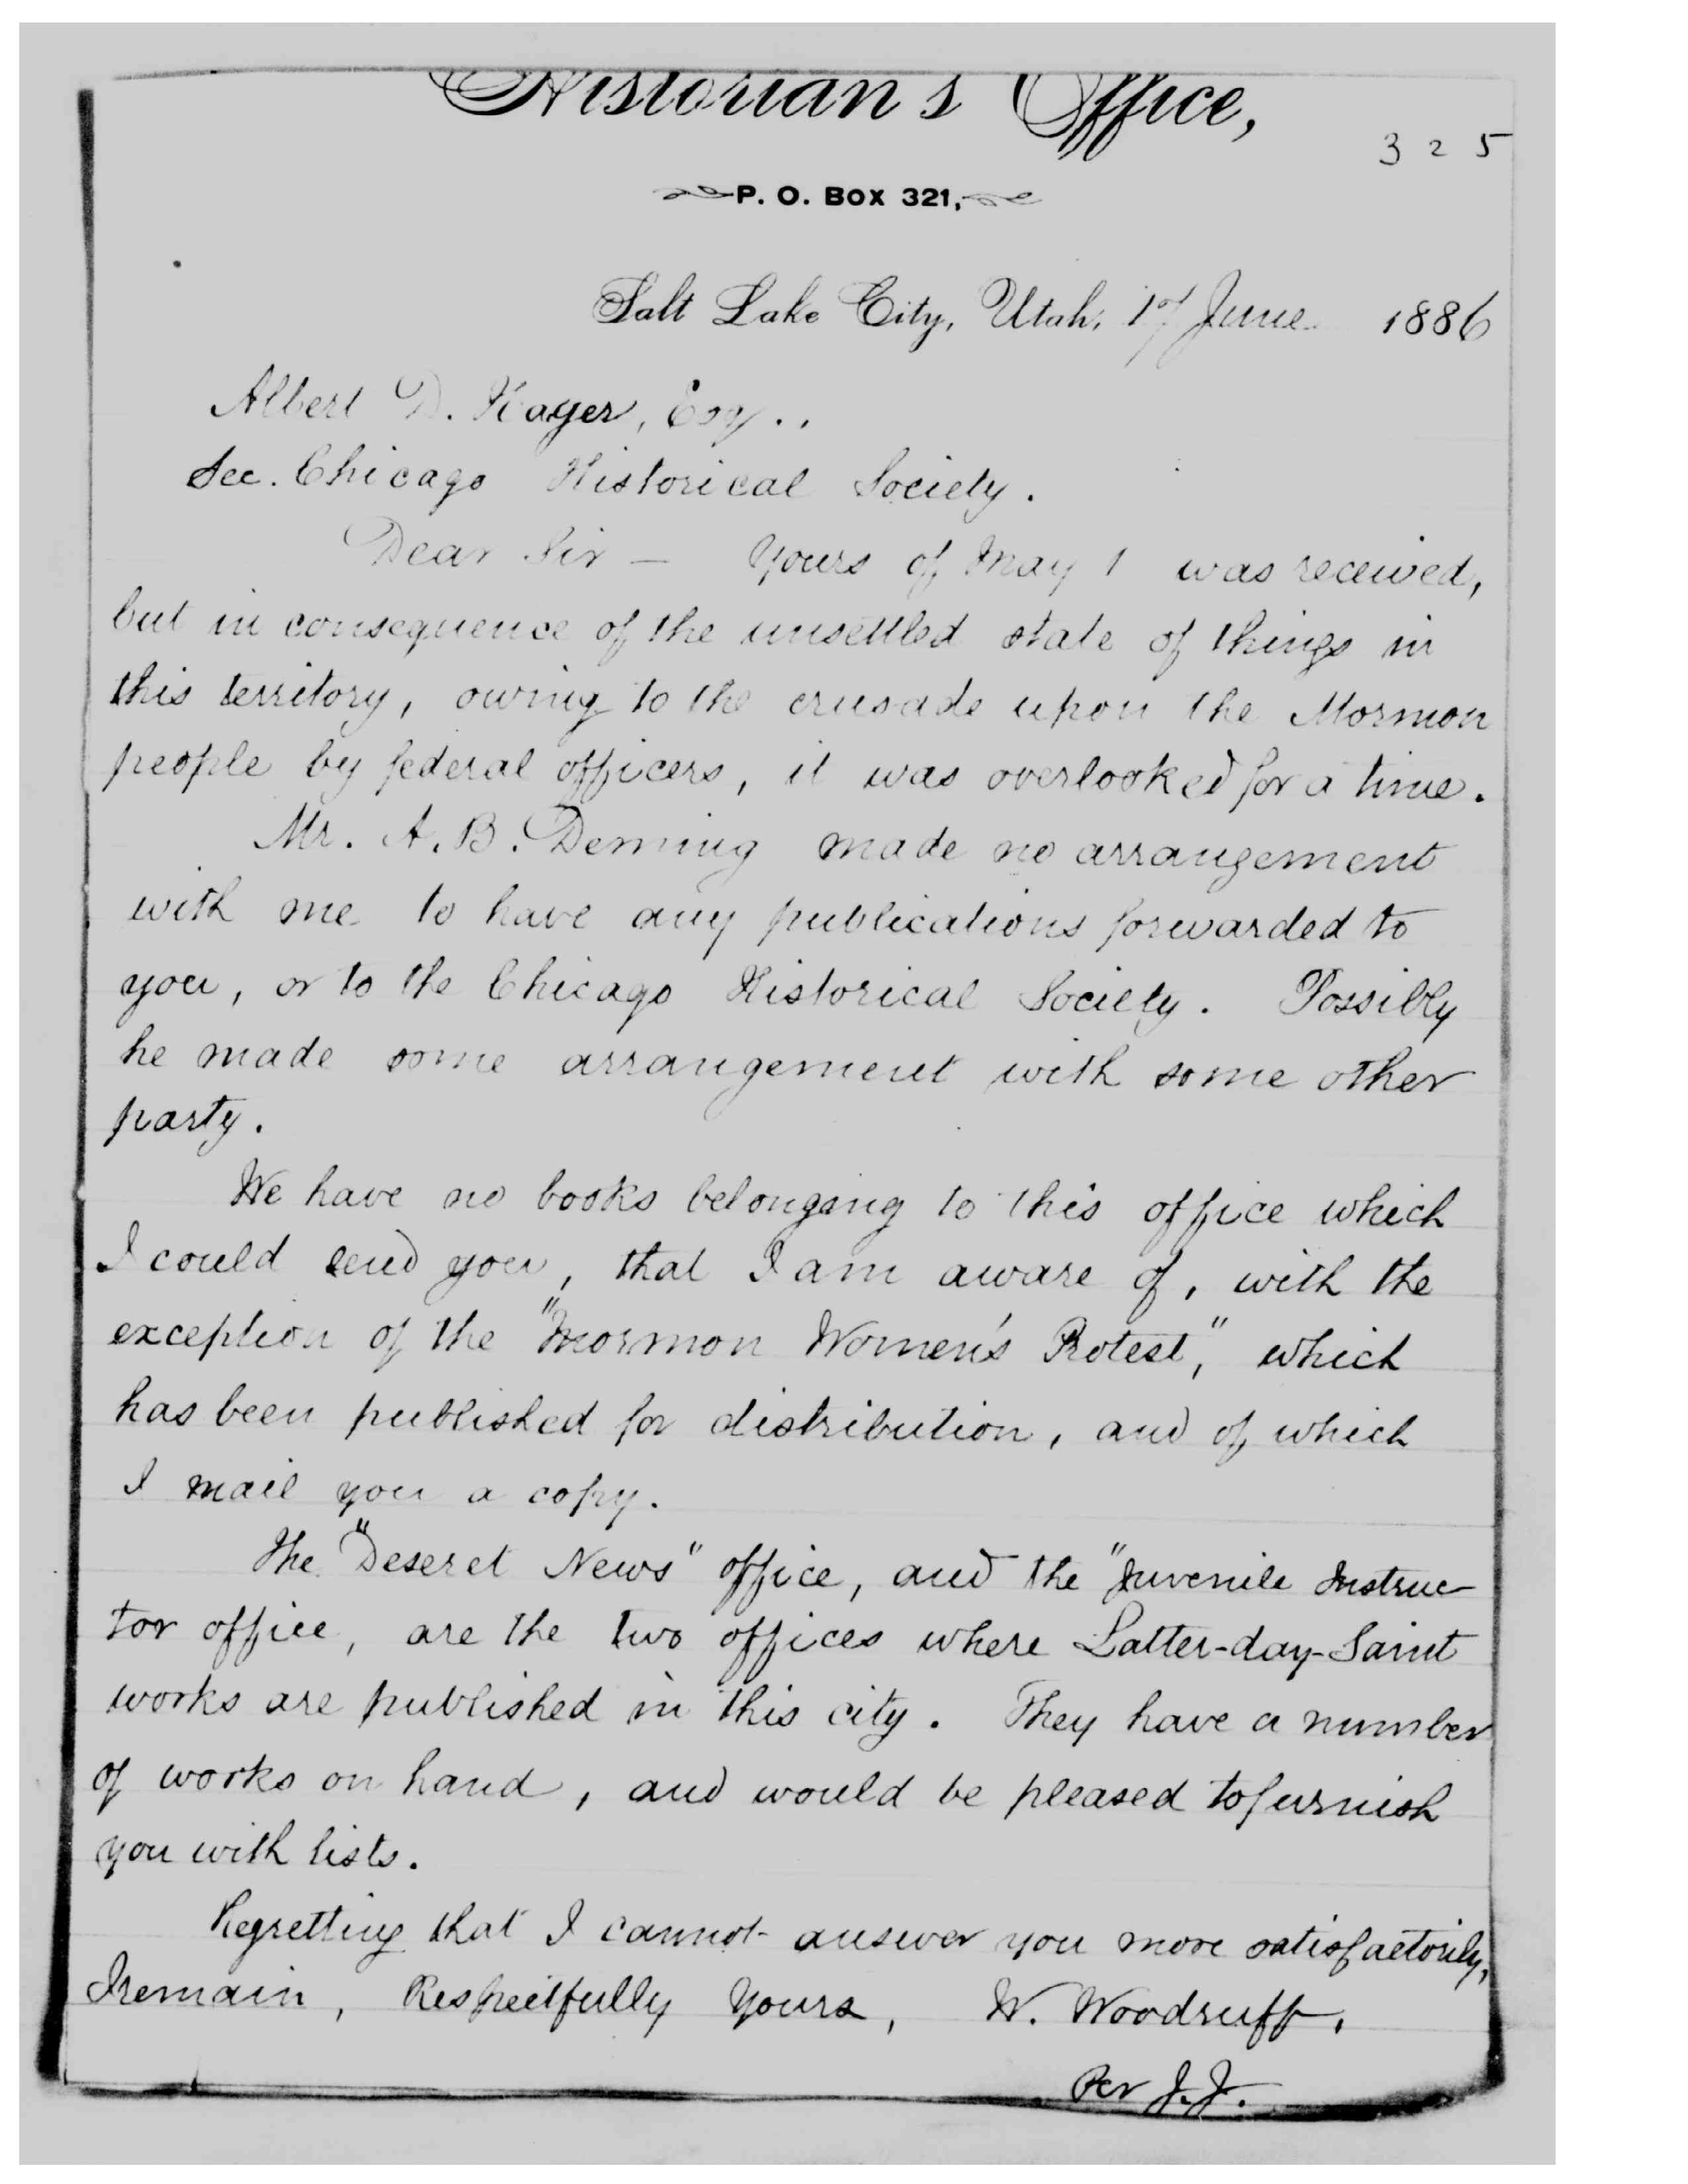 Historian's Office,
3 2 5
P. O. BOX 321,
Salt Lake City, Utah, 17 June 1886
Albert D. Hager, Esq.,
Sec. Chicago Historical Society.
Dear Sir — Yours of May 1 was received,
but in consequence of the unsettled state of things in
this territory, owing to the crusade upon the Mormon
people by federal officers, it was overlooked for a time.
Mr. A. B. Deming made no arrangement
with me to have any publications forwarded to
you, or to the Chicago Historical Society. Possibly
he made some arrangement with some other
party.
We have no books belonging to this office which
I could send you, that I am aware of, with the
exception of the "Mormon Women's Protest," which
has been published for distribution, and of which
I mail you a copy.
The "Deseret News" office, and the "Juvenile Instruc-
tor office, are the two offices where Latter-day-Saint
works are published in this city. They have a number
of works on hand, and would be pleased to furnish
you with lists.
Regretting that I cannot answer you more satisfactorily,
I remain, Respectfully Yours, W. Woodruff,
Per J.J.